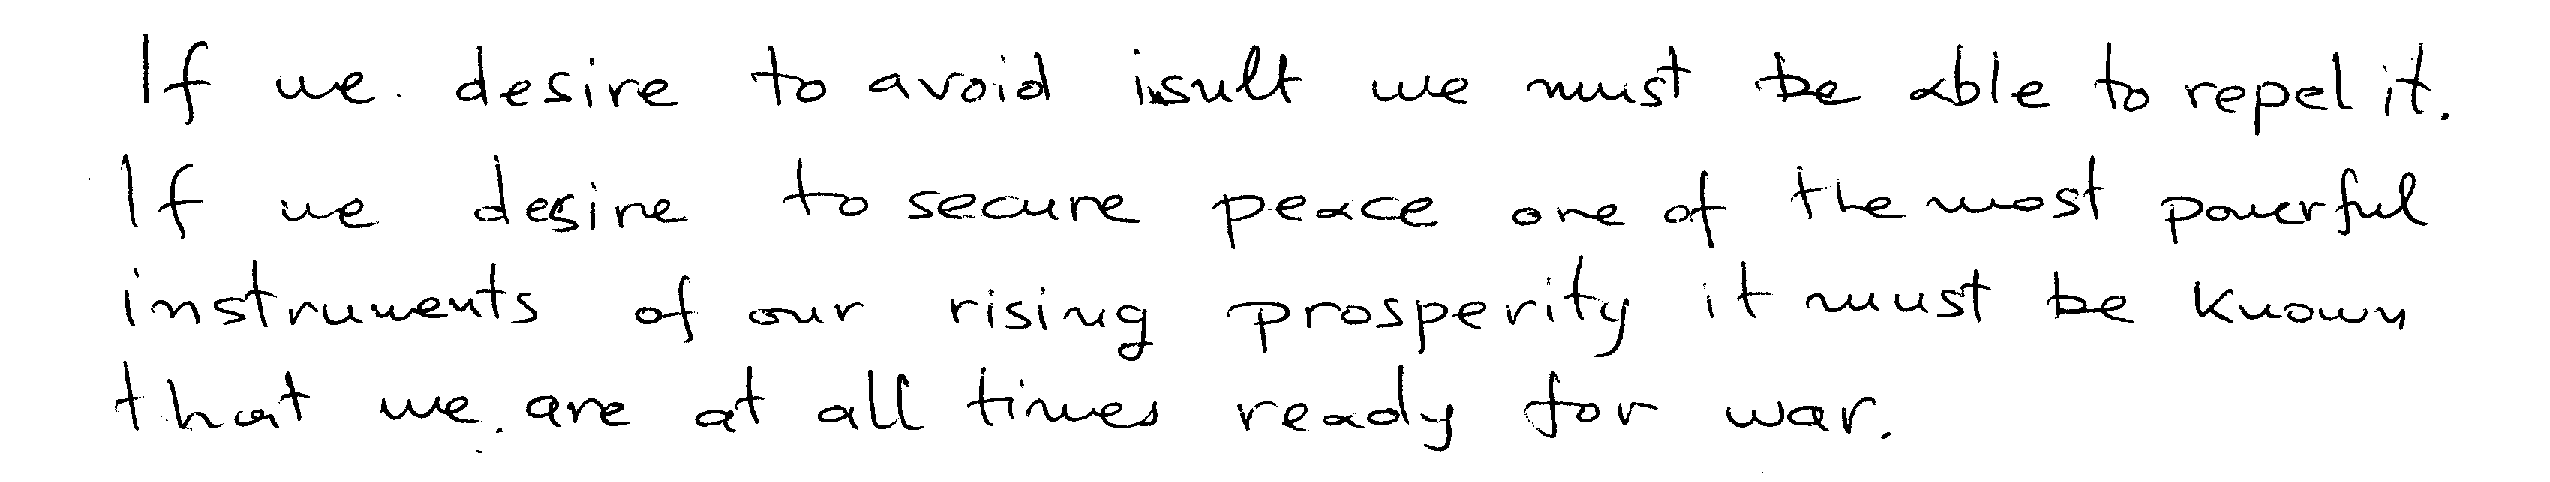 If we desire to avoid isult we must be able to repel it.
If we desire to secure peace one of the most powerful
instruments of our rising prosperity it must be known
that we are at all times ready for war.